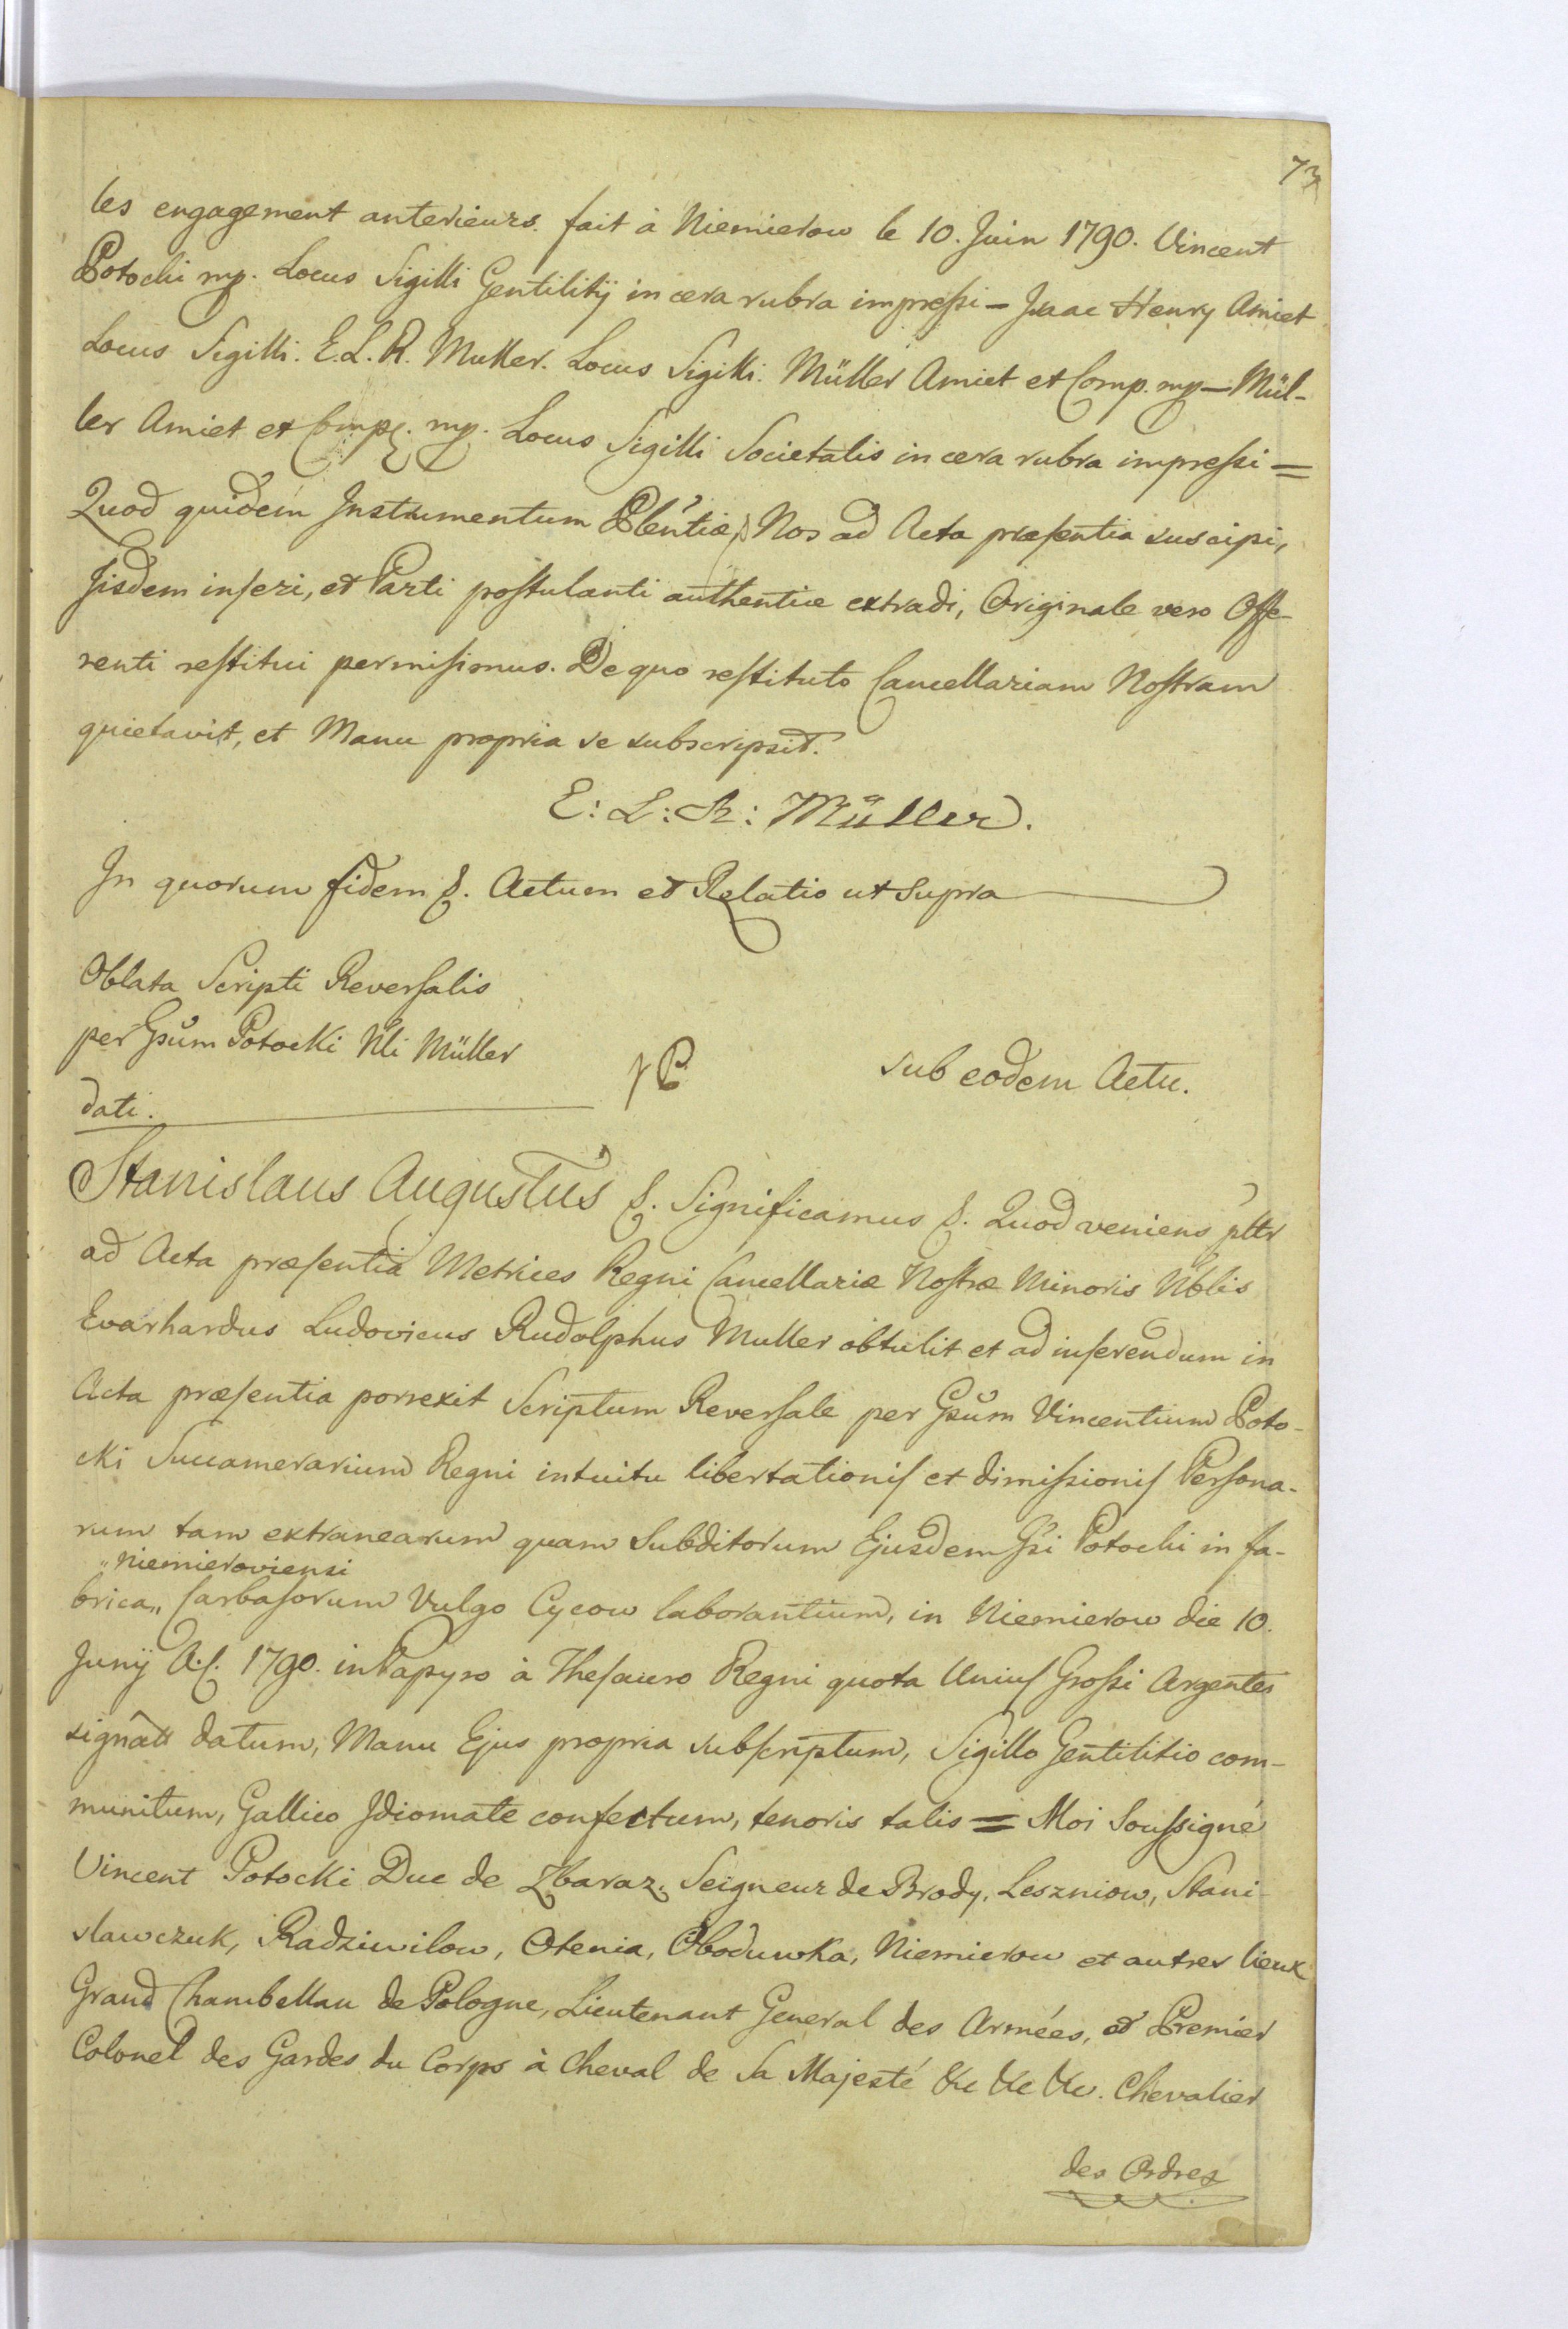 73
les engagement anterieurs. fait à Niemierow le 10. Juin 1790. Vincent
Potocki mp. Locus Sigilli Gentilitÿ in cera rubra impressi – Isaac Henry Amiet
Locus Sigilli. E.L.R. Muller. Locus Sigilli. Müller Amiet et Comp. mp – Mül-
ler Amiet et Comp. mp. Locus Sigilli Societatis in cera rubra impressi =
Quod quidem Instrumentum Nos ad Acta præsentia suscipi,
Iisdem inseri, et Parti postulanti authentice extradi, Originale vero Offe-
renti restitui permisimus. De quo restituto Cancellariam Nostram
quietavit, et Manu propria se subscripsit.
E: L: R: Müller.
In quorum fidem &. Actum et Relatio ut supra
Oblata Scripti Reversalis
per Gsum Potocki Nli Müller
sub eodem Actu.
dati.
Stanislaus Augustus &. Significamus &. Quod veniens pltr
ad Acta præsentia Metrices Regni Cancellariæ Nostræ Minoris Nblis
Evarhardus Ludovicus Rudolphus Muller obtulit et ad inserendum in
Acta præsentia porrexit Scriptum Reversale per Gsum Vincentium Poto-
cki Succamerarium Regni intuitu libertationis et dimissionis Persona-
rum tam extranearum quam Subditorum Ejusdem Gsi Potocki in fa-
„Niemieroviensi
brica„ Carbasorum Vulgo Cycow laborantium, in Niemierow die 10.
Junÿ A.c. 1790. in Papyro à Thesauro Regni quota Unius Grossi Argentei
signata datum, Manu Ejus propria subscriptum, Sigillo Gentilitio com-
munitum, Gallico Idiomate confectum, tenoris talis = Moi Soussigné
Vincent Potocki Duc de Zbaraz, Seigneur de Brody, Leszniow, Stani-
slawczuk, Radziwilow, Otenia, Oboduwka, Niemierow et autres lieux
Grand Chambellan de Pologne, Lieutenant General des Armées, et Premier
Colonel des Gardes du Corps à Cheval de Sa Majesté &c &c &c. Chevalier
des Ordres